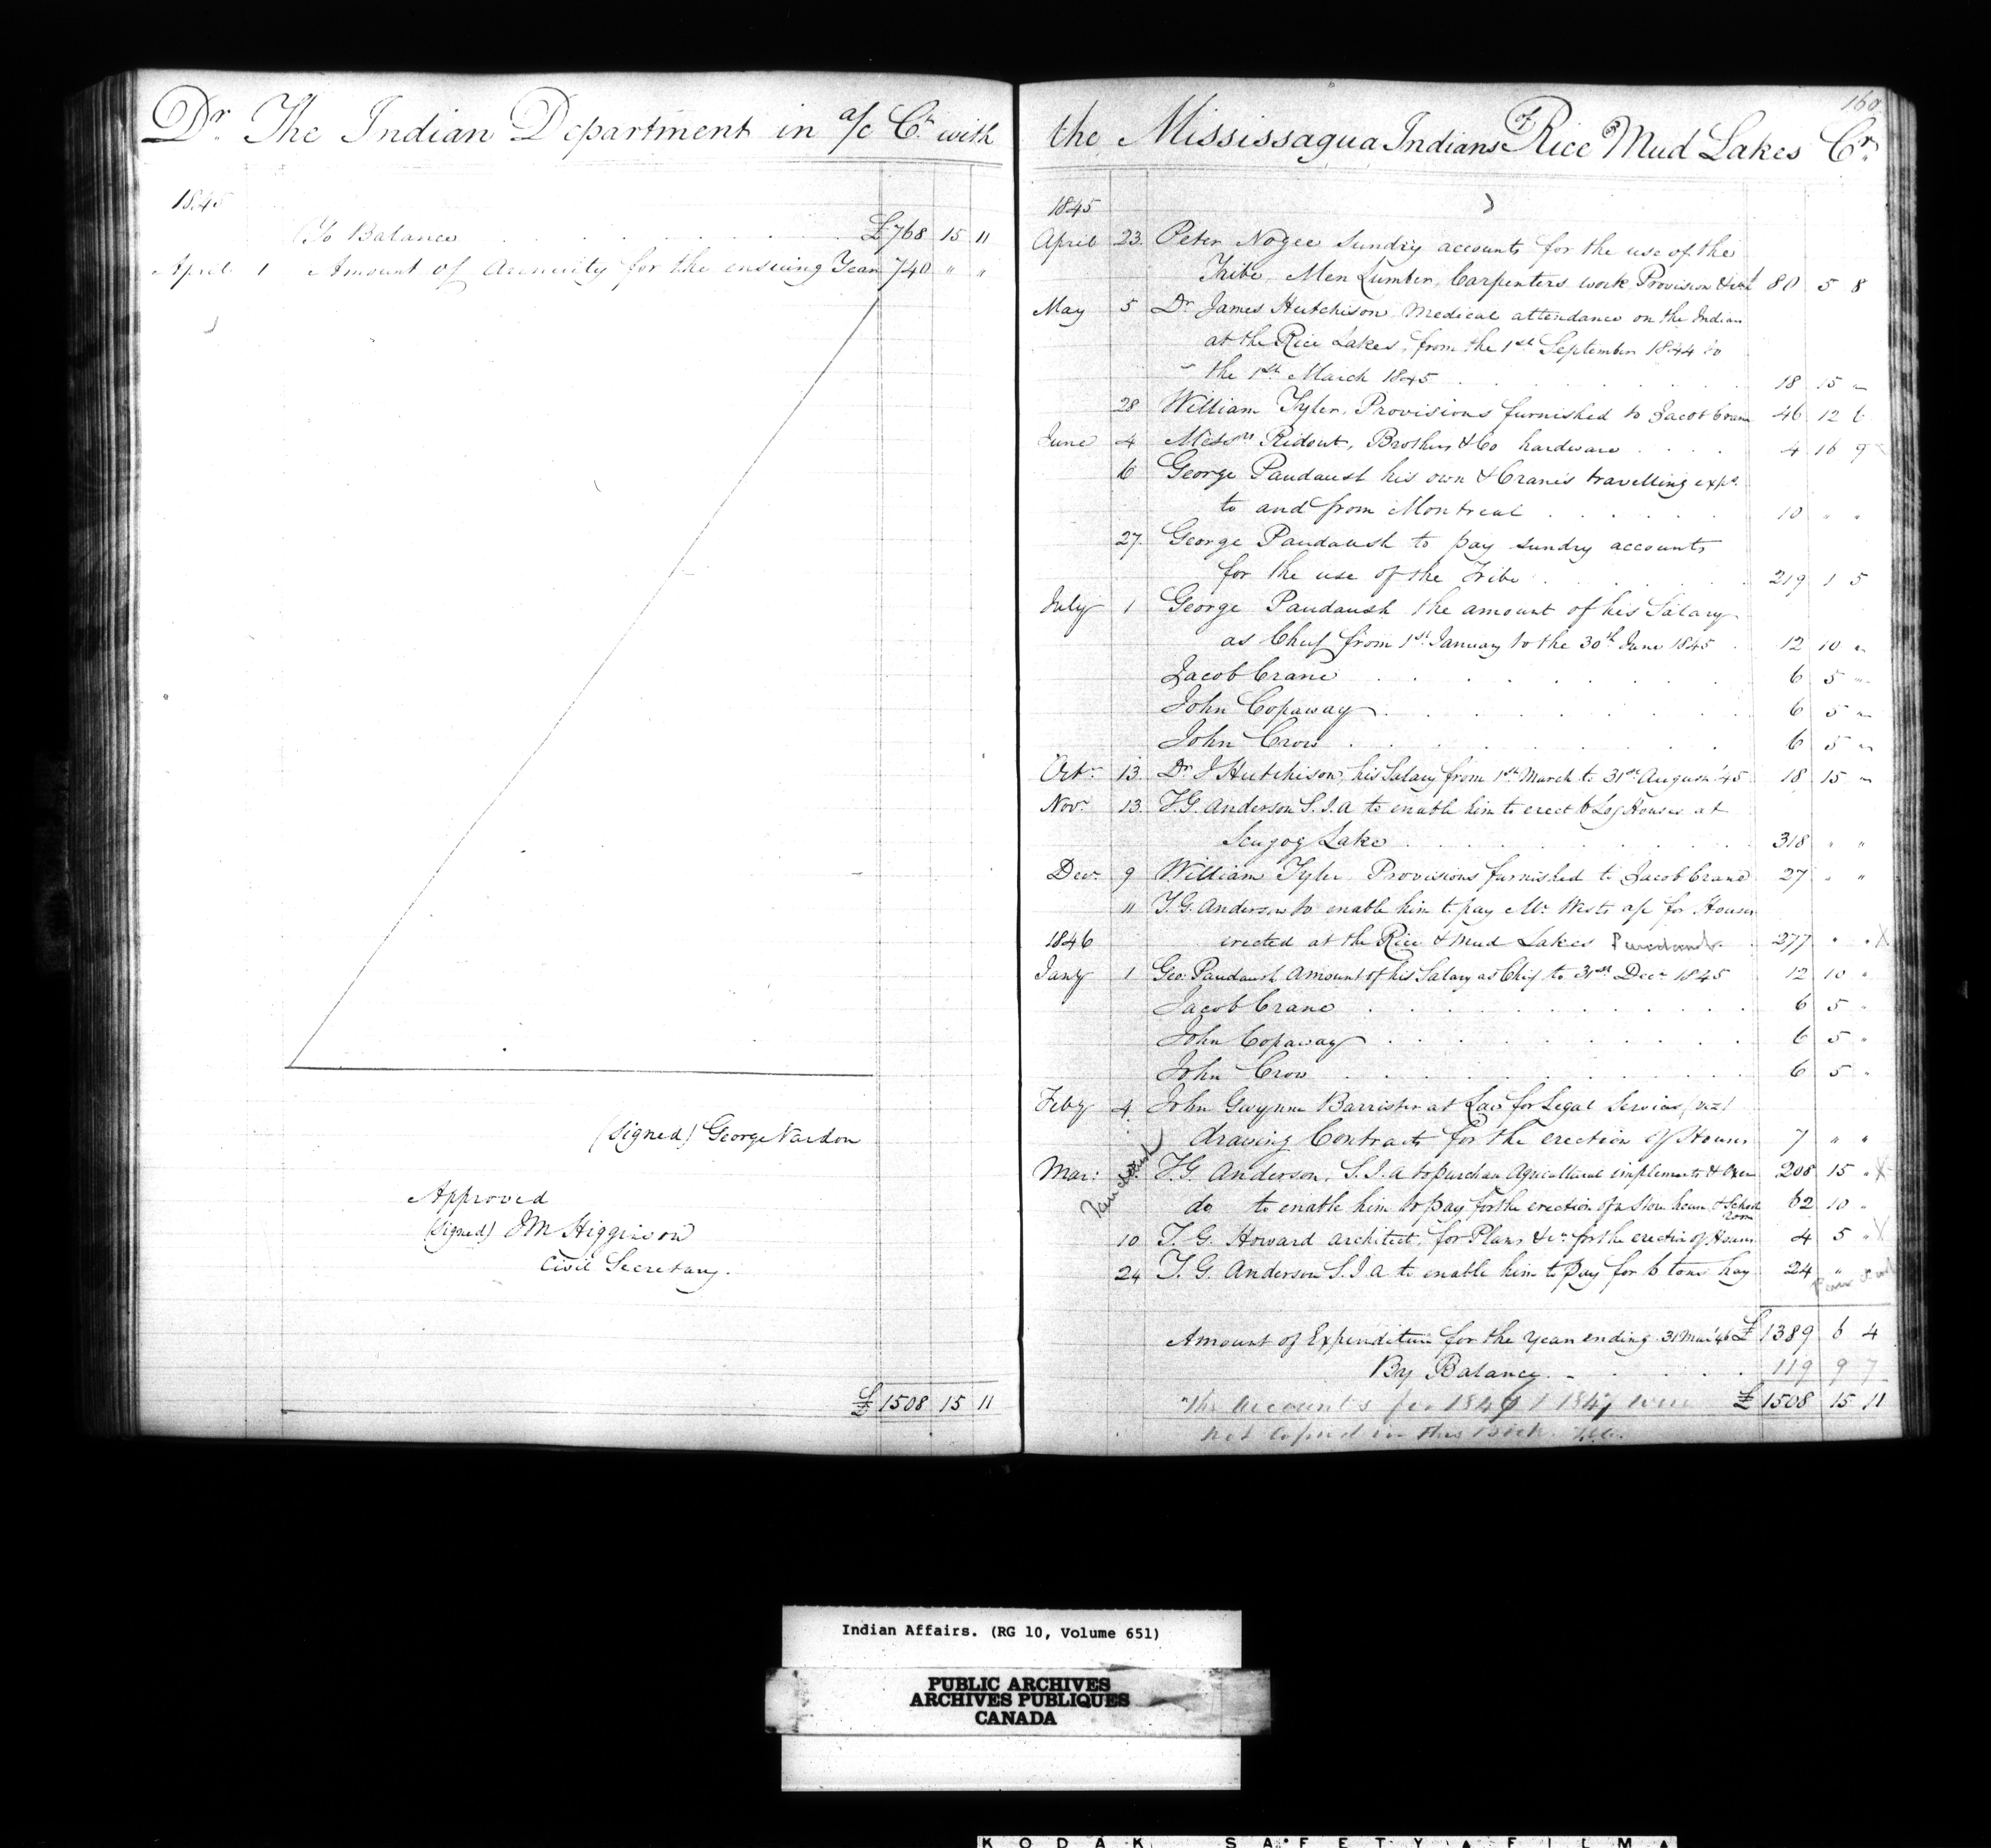 Dr. The Indian Department in a/c Ct. with
1845
To Balance £768 15 11
April 1 Amount of Annuity for the ensuing Year 740 " "
(Signed) George Vardon
Approved
(Signed) JM Higginson
Civil Secretary.
£1508 15 11
160
the Mississagua Indians of Rice & Mud Lakes Cr.
1845
April 23. Peter Nogee Sundry accounts for the use of the
Tribe, Men Lumber, Carpenters work, Provision 80 5 8
May 5 Dr. James Hutchison Medical attendance on the Indian
at the Rice Lakes, from the 1st September 1844 to
the 1st March 1845 18 15 "
28 William Tyler, Provisions furnished to Jacob Crane 46 12 6
June 4 Messrs Ridout, Brothers & Co hardware 4 16 9
6 George Paudaush his own & Crane's travelling exps.
to and from Montreal 10 " "
27. George Paudaush to pay sundry accounts
for the use of the Tribe 219 1 5
July 1 George Paudaush the amount of his Salary
as Chief from 1st January to the 30th June 1845 12 10 "
Jacob Crane 6 5 "
John Copaway 6 5 "
John Crow 6 5 "
Octr. 13. Dr. J Hutchison, his Salary from 1st March to 31st August '45 18 15 "
Novr. 13 T.G. Anderson S.I.A to enable him to erect 6 Log Houses at
Scugog Lake 318 " "
Decr. 9 William Tyler Provisions furnished to Jacob Crane 27 " "
" T.G. Anderson to enable him to pay Mr. Wests a/c for Houses
1846 erected at the Rice & Mud Lakes Paudaush 277 " " X
Jany 1 Geo. Paudaush Amount of his Salary as Chief to 31st Decr. 1845 12 10 "
Jacob Crane 6 5 "
John Copaway 6 5 "
John Crow 6 5 "
Feby 4. John Gwynne Barrister at Law for Legal Services (viz)
drawing Contracts for the erection of Houses 7 " "
Paudaush
Mar: T.G. Anderson, S.I.A to purchase Agricultural implements & Oxen 208 15 " X
do to enable him to pay for the erection of a Store house & School room 62 10 "
10 T.G. Howard architect, for Plans &c. for the erection of Houses 4 5 " X
24 T.G. Anderson S.I.A to enable him to pay for 6 tons hay 24 "
Amount of Expenditure for the year ending 31 Mar '46 £1389 6 4
By Balance 119 9 7
The accounts for 1846/1847 were £1508 15 11
not copied in this Book.
Indian Affairs. (RG 10, Volume 651)
PUBLIC ARCHIVES
ARCHIVES PUBLIQUES
CANADA
KODAK SAFETY FILM